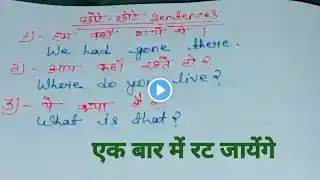 छोटे-छोटे Sentences
1)- हम वहाँ गये थे।
We had gone there.
2)- आप कहाँ रहते हो?
Where do you live?
3)- ये क्या है?
What is that?
एक बार में रट जायेंगे